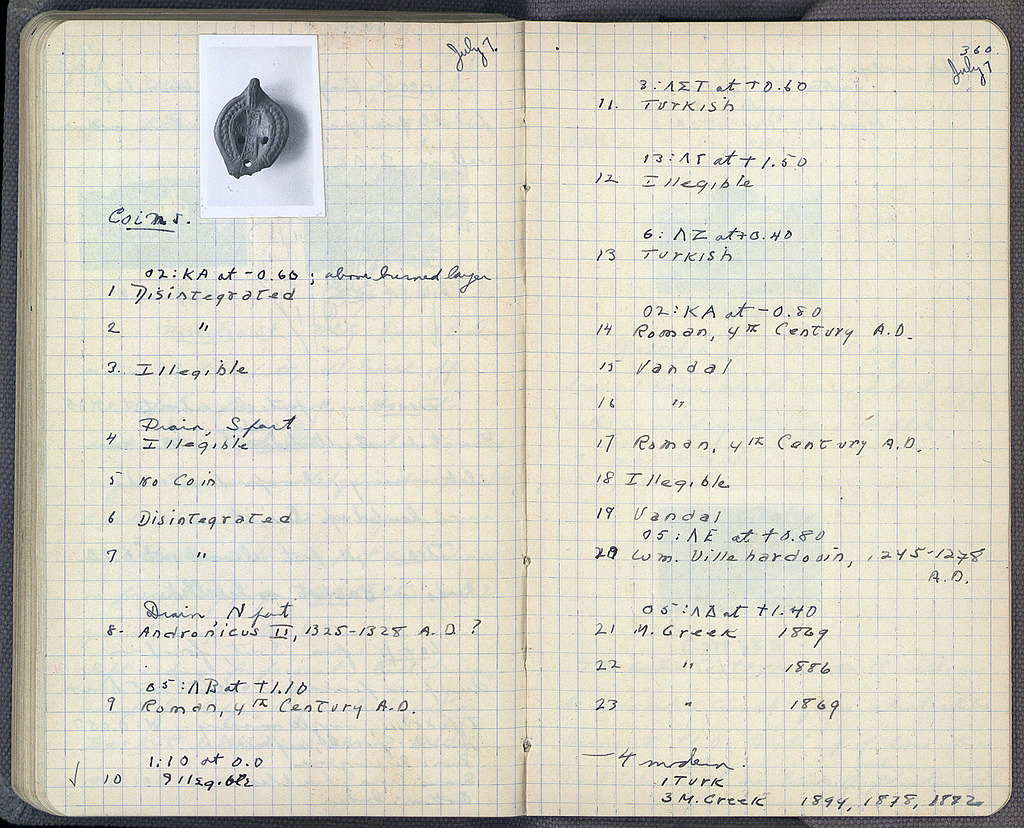 July 7.
Coins.
02:KA at -0.60; above burned layer
1 Disintegrated
2 "
3. Illegible
Drain, S part
4 Illegible
5 No Coin
6 Disintegrated
7 "
Drain, N part
8- Andronicus II, 1325-1328 A.D.?
05:ΛB at +1.10
9 Roman, 4th Century A.D.
1:10 at 0.0
✓ 10 Illegible
360
July 7
3:ΛΣT at +0.60
11. Turkish
13:ΛΓ at +1.50
12 Illegible
6:ΛZ at +0.40
13 Turkish
02:KA at -0.80
14 Roman, 4th Century A.D.
15 Vandal
16 "
17 Roman, 4th Century A.D.
18 Illegible
19 Vandal
05:ΛE at +0.80
20 Wm. Villehardouin, 1245-1278
A.D.
05:ΛΔ at +1.40
21 M. Greek 1869
22 " 1886
23 " 1869
— 4 modern.
1 Turk
3 M. Greek 1894, 1878, 1882